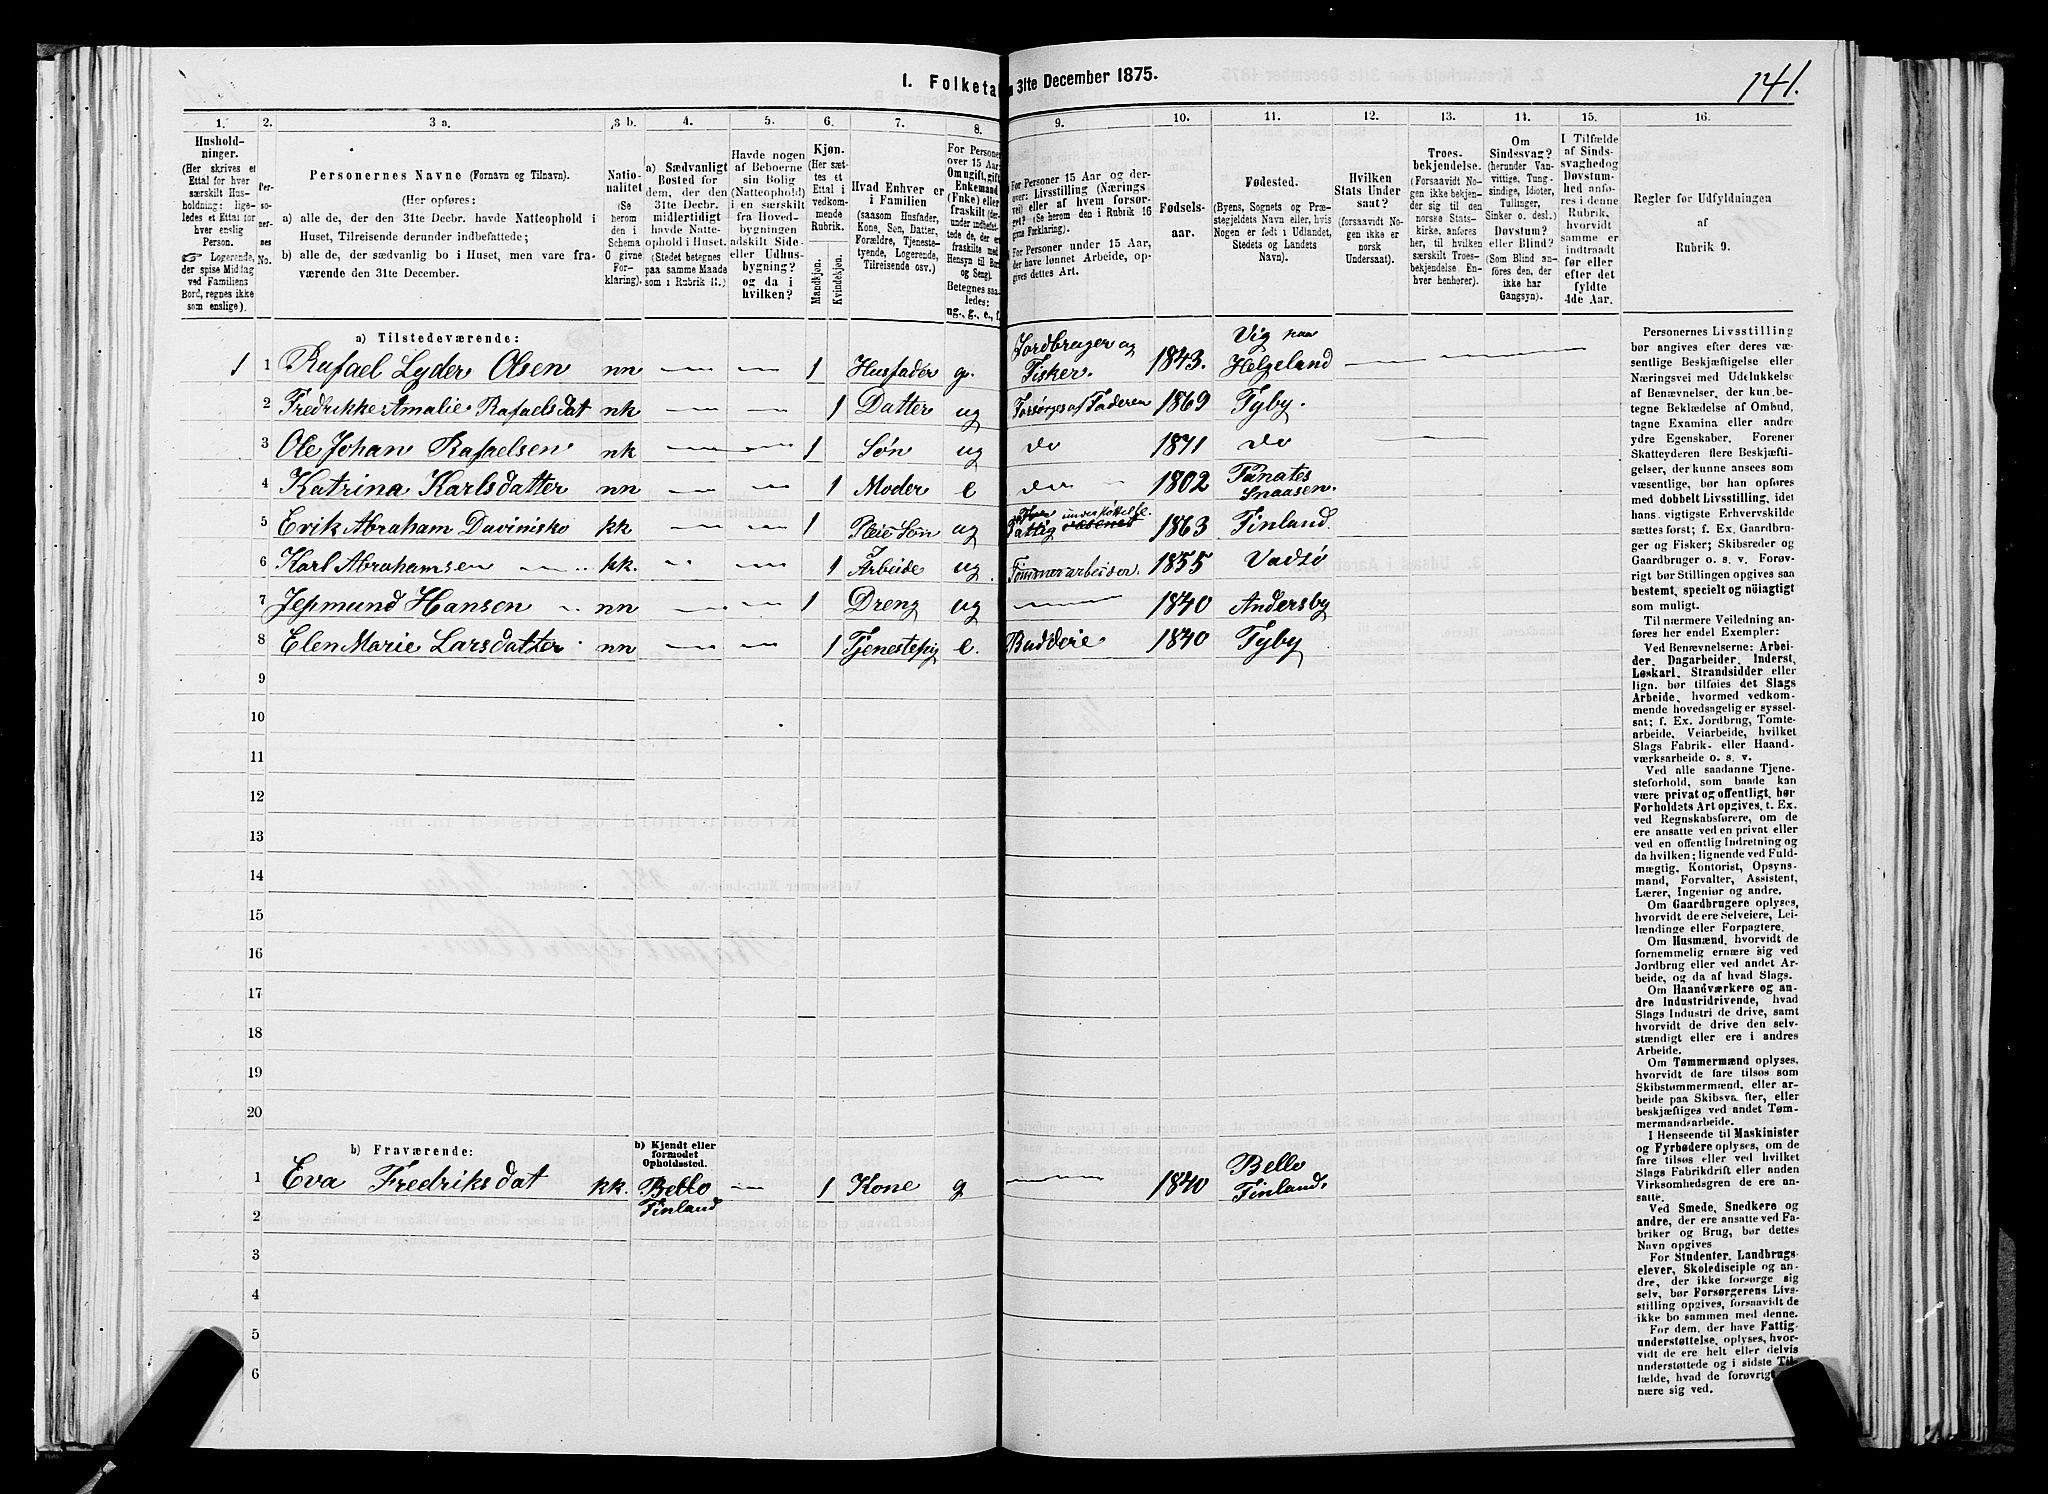 1. Folketa n 31te December 1875.
141.
1.
Hushold-
ninger.
(Her skrives et
Ettal for hver
særskilt Hus-
holdning; lige-
ledes et Ettal for
hver enslig
Person.
☞ Logerende,
der spise Middag
ved Familiens
Bord, regnes ikke
som enslige).
2.
Per-
so-
ner-
nes
No.
3 a.
Personernes Navne (Fornavn og Tilnavn).
(Her opføres:
a) alle de, der den 31te Decbr. havde Natteophold i
Huset, Tilreisende derunder indbefattede;
b) alle de, der sædvanlig bo i Huset, men vare fra-
værende den 31te December.
3 b.
Natio-
nalitet
(Se
herom
den i
Schema
C givne
For-
klaring).
4.
a) Sædvanligt
Bosted for
dem, der den
31te Decbr.
midlertidigt
havde Natte-
ophold i Huset.
(Stedet betegnes
paa samme Maade
som i Rubrik 11.)
5.
Havde nogen
af Beboerne
sin Bolig
(Natteophold)
i en særskilt
fra Hoved-
bygningen
adskilt Side-
eller Udhus-
bygning?
og da i
hvilken?
6.
Kjøn.
(Her sæt-
tes et
Ettal i
vedkom-
mende
Rubrik.
Mandkjøn.
Kvindekjøn.
7.
Hvad Enhver er
i Familien
(saasom Husfader,
Kone, Søn, Datter,
Forældre, Tjeneste-
tyende, Logerende,
Tilreisende osv.)
8.
For Personer
over 15 Aar:
Om ugift, gift,
Enkemand
(Enke) eller
fraskilt (der-
under indbefat-
tede de, der ere
fraskilte med
Hensyn til Bord
og Seng).
Betegnes saa-
ledes:
ug., g., e., f.
9.
For Personer 15 Aar og der-
over: Livsstilling (Nærings-
vei) eller af hvem forsør-
get? (Se herom den i Rubrik 16
givne Forklaring).
For Personer under 15 Aar,
der have lønnet Arbeide, op-
gives dettes Art.
10.
Fødsels-
aar.
11.
Fødested.
(Byens, Sognets og Præ-
stegjeldets Navn eller, hvis
Nogen er født i Udlandet,
Stedets og Landets
Navn).
12.
Hvilken
Stats Under
saat?
(forsaavidt No-
gen ikke er
norsk
Undersaat).
13.
Troes-
bekjendelse.
(Forsaavidt No-
gen ikke bekjen-
der sig til den
norske Stats-
kirke, anføres
her, til hvilken
særskilt Troes-
bekjendelse En-
hver henhører).
14.
Om
Sindssvag?
(herunder Van-
vittige, Tung-
sindige, Idioter,
Tullinger,
Sinker o. desl.)
Døvstum?
eller Blind?
(Som Blind an-
føres den, der
ikke har
Gangsyn).
15.
I Tilfælde
af Sinds-
svaghed og
Døvstum-
hed anfø-
res i denne
Rubrik,
hvorvidt
samme er
indtraadt
før eller
efter det
fyldte
4de Aar.
16.
Regler for Udfyldningen
af
Rubrik 9.
a) Tilstedeværende:
1 1 Rafael Lyder Olsen nn 1 Husfader g. Jordbruger og Fisker. 1843. Vig paa Helgeland
2 Fredrikke Amalie Rafaelsdat nk 1 Datter ug Forsørges af Faderen 1869 Tyby.
3 Ole Johan Rafaelsen nk 1 Søn ug do 1871 do
4 Katrina Karlsdatter nn 1 Moder e do 1802 Snaasen.
5 Erik Abraham Davinisko kk 1 Pleie Søn ug Fattig understøttelse. 1863 Finland.
6 Karl Abrahamsen kk. 1 Arbeide ug. Tømmerarbeider. 1855 Vadsø
7 Jepmund Hansen nn 1 Dreng ug 1840 Andersby
8 Elen Marie Larsdatter nn 1 Tjenestepig e. Buddeie 1840 Tyby
9
10
11
12
13
14
15
16
17
18
19
20
b) Fraværende:
b) Kjendt eller
formodet
Opholdssted.
1 Eva Fredriksdat kk. Bello Finland 1 Kone g 1840 Bello Finland.
2
3
4
5
6
Personernes Livsstilling
bør angives efter deres væ-
sentlige Beskjæftigelse eller
Næringsvei med Udelukkelse
af Benævnelser, der kun be-
tegne Beklædelse af Ombud,
tagne Examina eller andre
ydre Egenskaber. Forener
Skatteyderen flere Beskjæfti-
gelser, der kunne ansees som
væsentlige, bør han opføres
med dobbelt Livsstilling, idet
hans vigtigste Erhvervskilde
sættes først; f. Ex. Gaardbru-
ger og Fisker; Skibsreder og
Gaardbruger o. s. v. Forøv-
rigt bør Stillingen opgives saa
bestemt, specielt og nøiagtigt
som muligt.
Til nærmere Veiledning an-
føres her endel Exempler:
Ved Benævnelserne: Arbei-
der, Dagarbeider, Inderst,
Løskarl, Strandsidder eller
lign. bør tilføies det Slags
Arbeide, hvormed vedkom-
mende hovedsagelig er syssel-
sat; f. Ex. Jordbrug, Tomte-
arbeide, Veiarbeide, hvilket
Slags Fabrik- eller Haand-
værksarbeide o. s. v.
Ved alle saadanne Tjene-
steforhold, som baade kan
være privat og offentligt, bør
Forholdets Art opgives, t. Ex.
ved Regnskabsførere, om de
ere ansatte ved en privat eller
ved en offentlig Indretning og
da hvilken; lignende ved Fuld-
mægtig, Kontorist, Opsyns-
mand, Forvalter, Assistent,
Lærer, Ingeniør og andre.
Om Gaardbrugere oplyses,
hvorvidt de ere Selveiere, Lei-
lændinge eller Forpagtere.
Om Husmænd, hvorvidt de
fornemmelig ernære sig ved
Jordbrug eller ved andet Ar-
beide, og da af hvad Slags.
Om Haandværkere og an-
dre Industridrivende, hvad
Slags Industri de drive, samt
hvorvidt de drive den selv-
stændigt eller ere i andres
Arbeide.
Om Tømmermænd oplyses,
hvorvidt de fare tilsøs som
Skibstømmermænd, eller ar-
beide paa Skibsværfter, eller
beskjæftiges ved andet Tøm-
mermandsarbeide.
I Henseende til Maskinister
og Fyrbødere oplyses, om de
fare tilsøs eller ved hvilket
Slags Fabrikdrift eller anden
Virksomhedsgren de ere an-
satte.
Ved Smede, Snedkere og
andre, der ere ansatte ved Fa-
briker og Brug, bør dettes
Navn opgives
For Studenter, Landbrugs-
elever, Skoledisciple og an-
dre, der ikke forsørge sig
selv, bør Forsørgerens Livs-
stilling opgives, forsaavidt de
ikke bo sammen med denne.
For dem, der have Fattig-
understøttelse, oplyses, hvor-
vidt de ere helt eller delvis
understøttede og i sidste Til-
fælde, hvad de forøvrigt
nære sig ved.